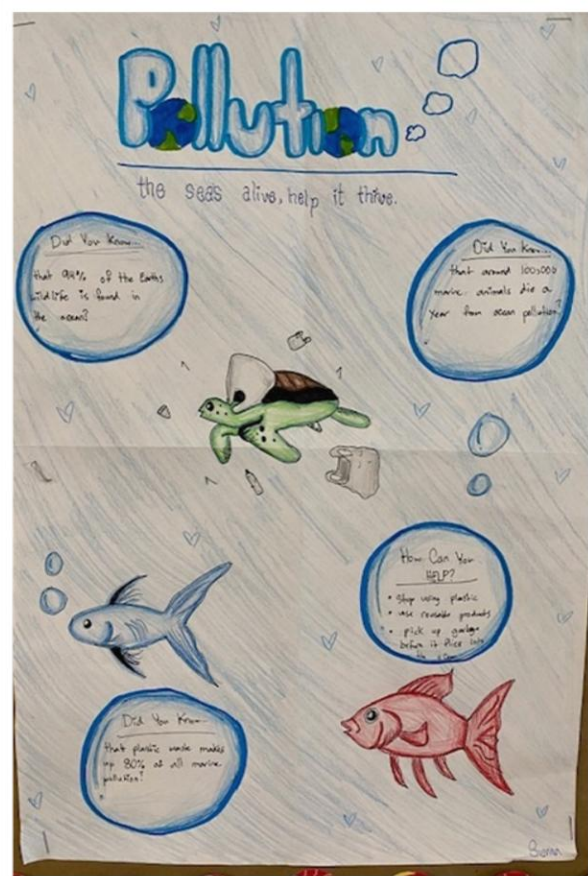 Pollution
the seas alive, help it thrive.
Did You Know...
that 94% of the Earths
wildlife is found in
the ocean?
Did You Know...
that around 100,000
marine animals die a
year from ocean pollution?
How Can You
HELP?
• stop using plastic
• use reusable products
• pick up garbage
before it flies into
the
Did You Know...
that plastic waste makes
up 80% of all marine
pollution?